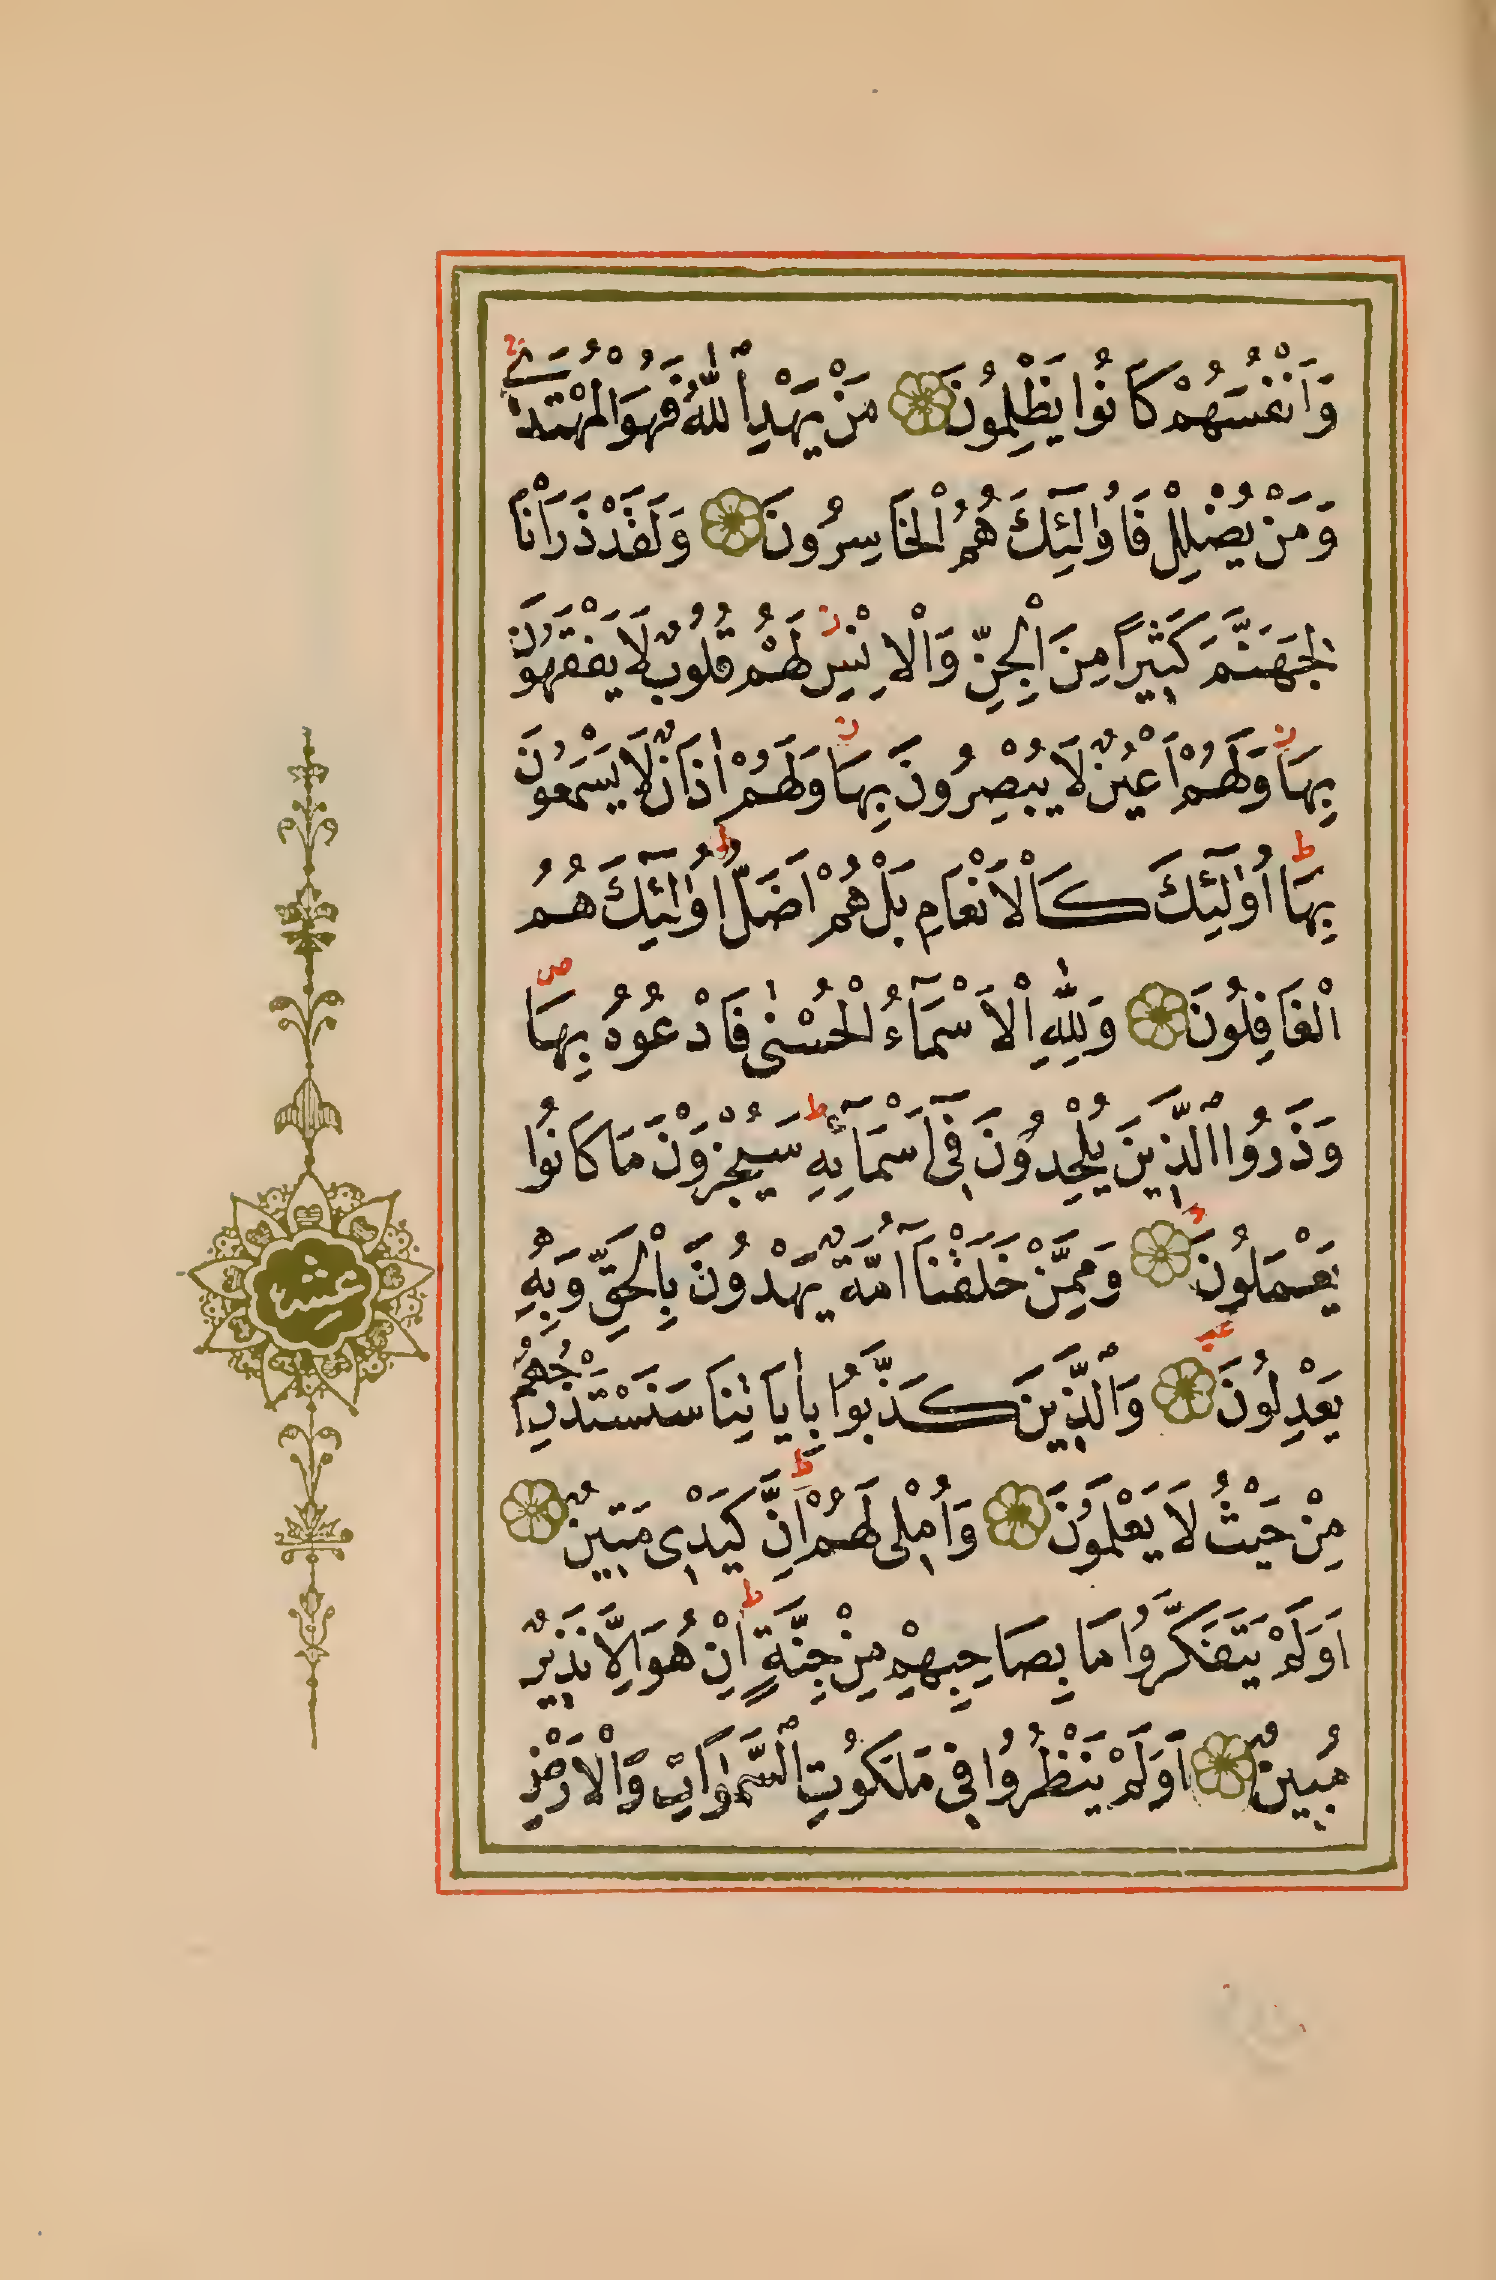 وَاَنْفُسَهُمْ كَانُوا يَظْلِمُونَ مَنْ يَهْدِ ٱللّٰهُ فَهُوَ الْمُهْتَدٖي
وَمَنْ يُضْلِلْ فَاُو۬لٰٓئِكَ هُمُ الْخَاسِرُونَ وَلَقَدْ ذَرَاْنَا
لِجَهَنَّمَ كَثٖيرًا مِنَ الْجِنِّ وَالْاِنْسِ لَهُمْ قُلُوبٌ لَا يَفْقَهُونَ
بِهَا وَلَهُمْ اَعْيُنٌ لَا يُبْصِرُونَ بِهَا وَلَهُمْ اٰذَانٌ لَا يَسْمَعُونَ
بِهَا اُو۬لٰٓئِكَ كَالْاَنْعَامِ بَلْ هُمْ اَضَلُّ اُو۬لٰٓئِكَ هُمُ
الْغَافِلُونَ وَلِلّٰهِ الْاَسْمَٓاءُ الْحُسْنٰى فَادْعُوهُ بِهَا
وَذَرُوا ٱلَّذٖينَ يُلْحِدُونَ فٖٓي اَسْمَٓائِهِ سَيُجْزَوْنَ مَا كَانُوا
يَعْمَلُونَ وَمِمَّنْ خَلَقْنَٓا اُمَّةٌ يَهْدُونَ بِالْحَقِّ وَبِهِ
يَعْدِلُونَ وَٱلَّذٖينَ كَذَّبُوا بِاٰيَاتِنَا سَنَسْتَدْرِجُهُمْ
مِنْ حَيْثُ لَا يَعْلَمُونَ وَاُمْلٖي لَهُمْ اِنَّ كَيْدٖي مَتٖينٌ
اَوَلَمْ يَتَفَكَّرُوا مَا بِصَاحِبِهِمْ مِنْ جِنَّةٍ اِنْ هُوَ اِلَّا نَذٖيرٌ
مُبٖينٌ اَوَلَمْ يَنْظُرُوا فٖي مَلَكُوتِ ٱلسَّمٰوَاتِ وَالْاَرْضِ
عشر